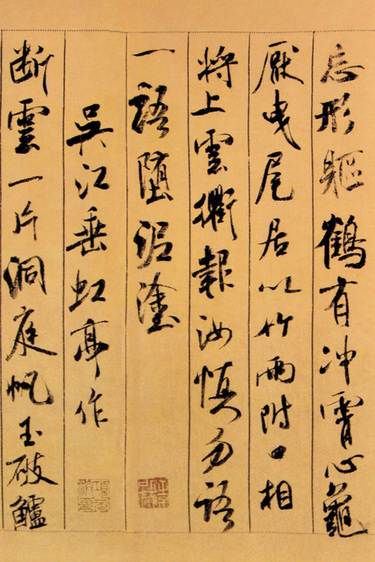 忘形軀鶴有冲霄心龜
厭曳尾居以竹兩附口相
将上雲衢報汝慎勿語
一語堕泥塗
吳江垂虹亭作
断雲一片洞庭帆玉破鱸